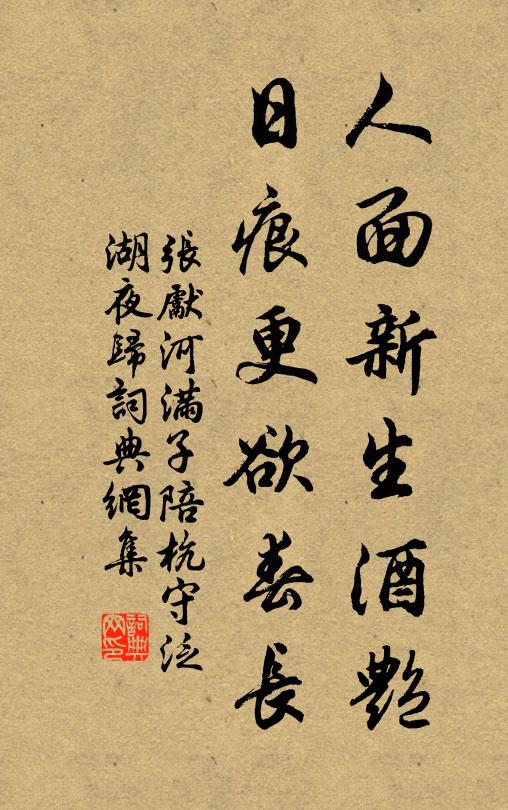 人面新生酒艷
日痕更欲春長
張獻河滿子陪杭守泛
湖夜歸詞典網集
詞典
网印